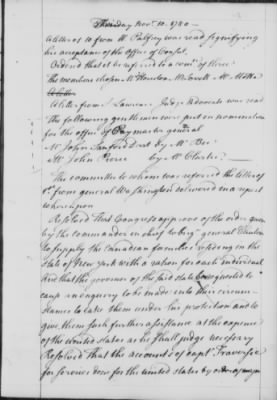 Thursday Nov.r 10. 1780
A letter of 10 from W Palfrey was read signifying
his acceptance of the Office of Consul.
Ordered that it be referred to a com.ee of three
The members chosen Mr Houston Mr Scott Mr Mathews
A letter
A letter from J Lawrance Judge Advocate was read
The following gentlemen were put in nomination
for the office of Paymaster general
Mr John Sanford Dart by Mr Bee
Mr John Pierce by Mr Clarke
The committee to whom was referred the letter of
1st from general Washington delivered in a report
whereupon
Resolved that Congress approve of the order given
by the commander in chief to brig.r general Clinton
to supply the Canadian families residing in the
state of New york with a ration for each individual
And that the governor of the said state be requested to
cause an enquiry to be made into their circum-
stances to take them under his protection and to
give them such further assistance at the expence
of the united states as he shall judge necessary
Resolved that the account of capt Traversie
for services done for the united states by